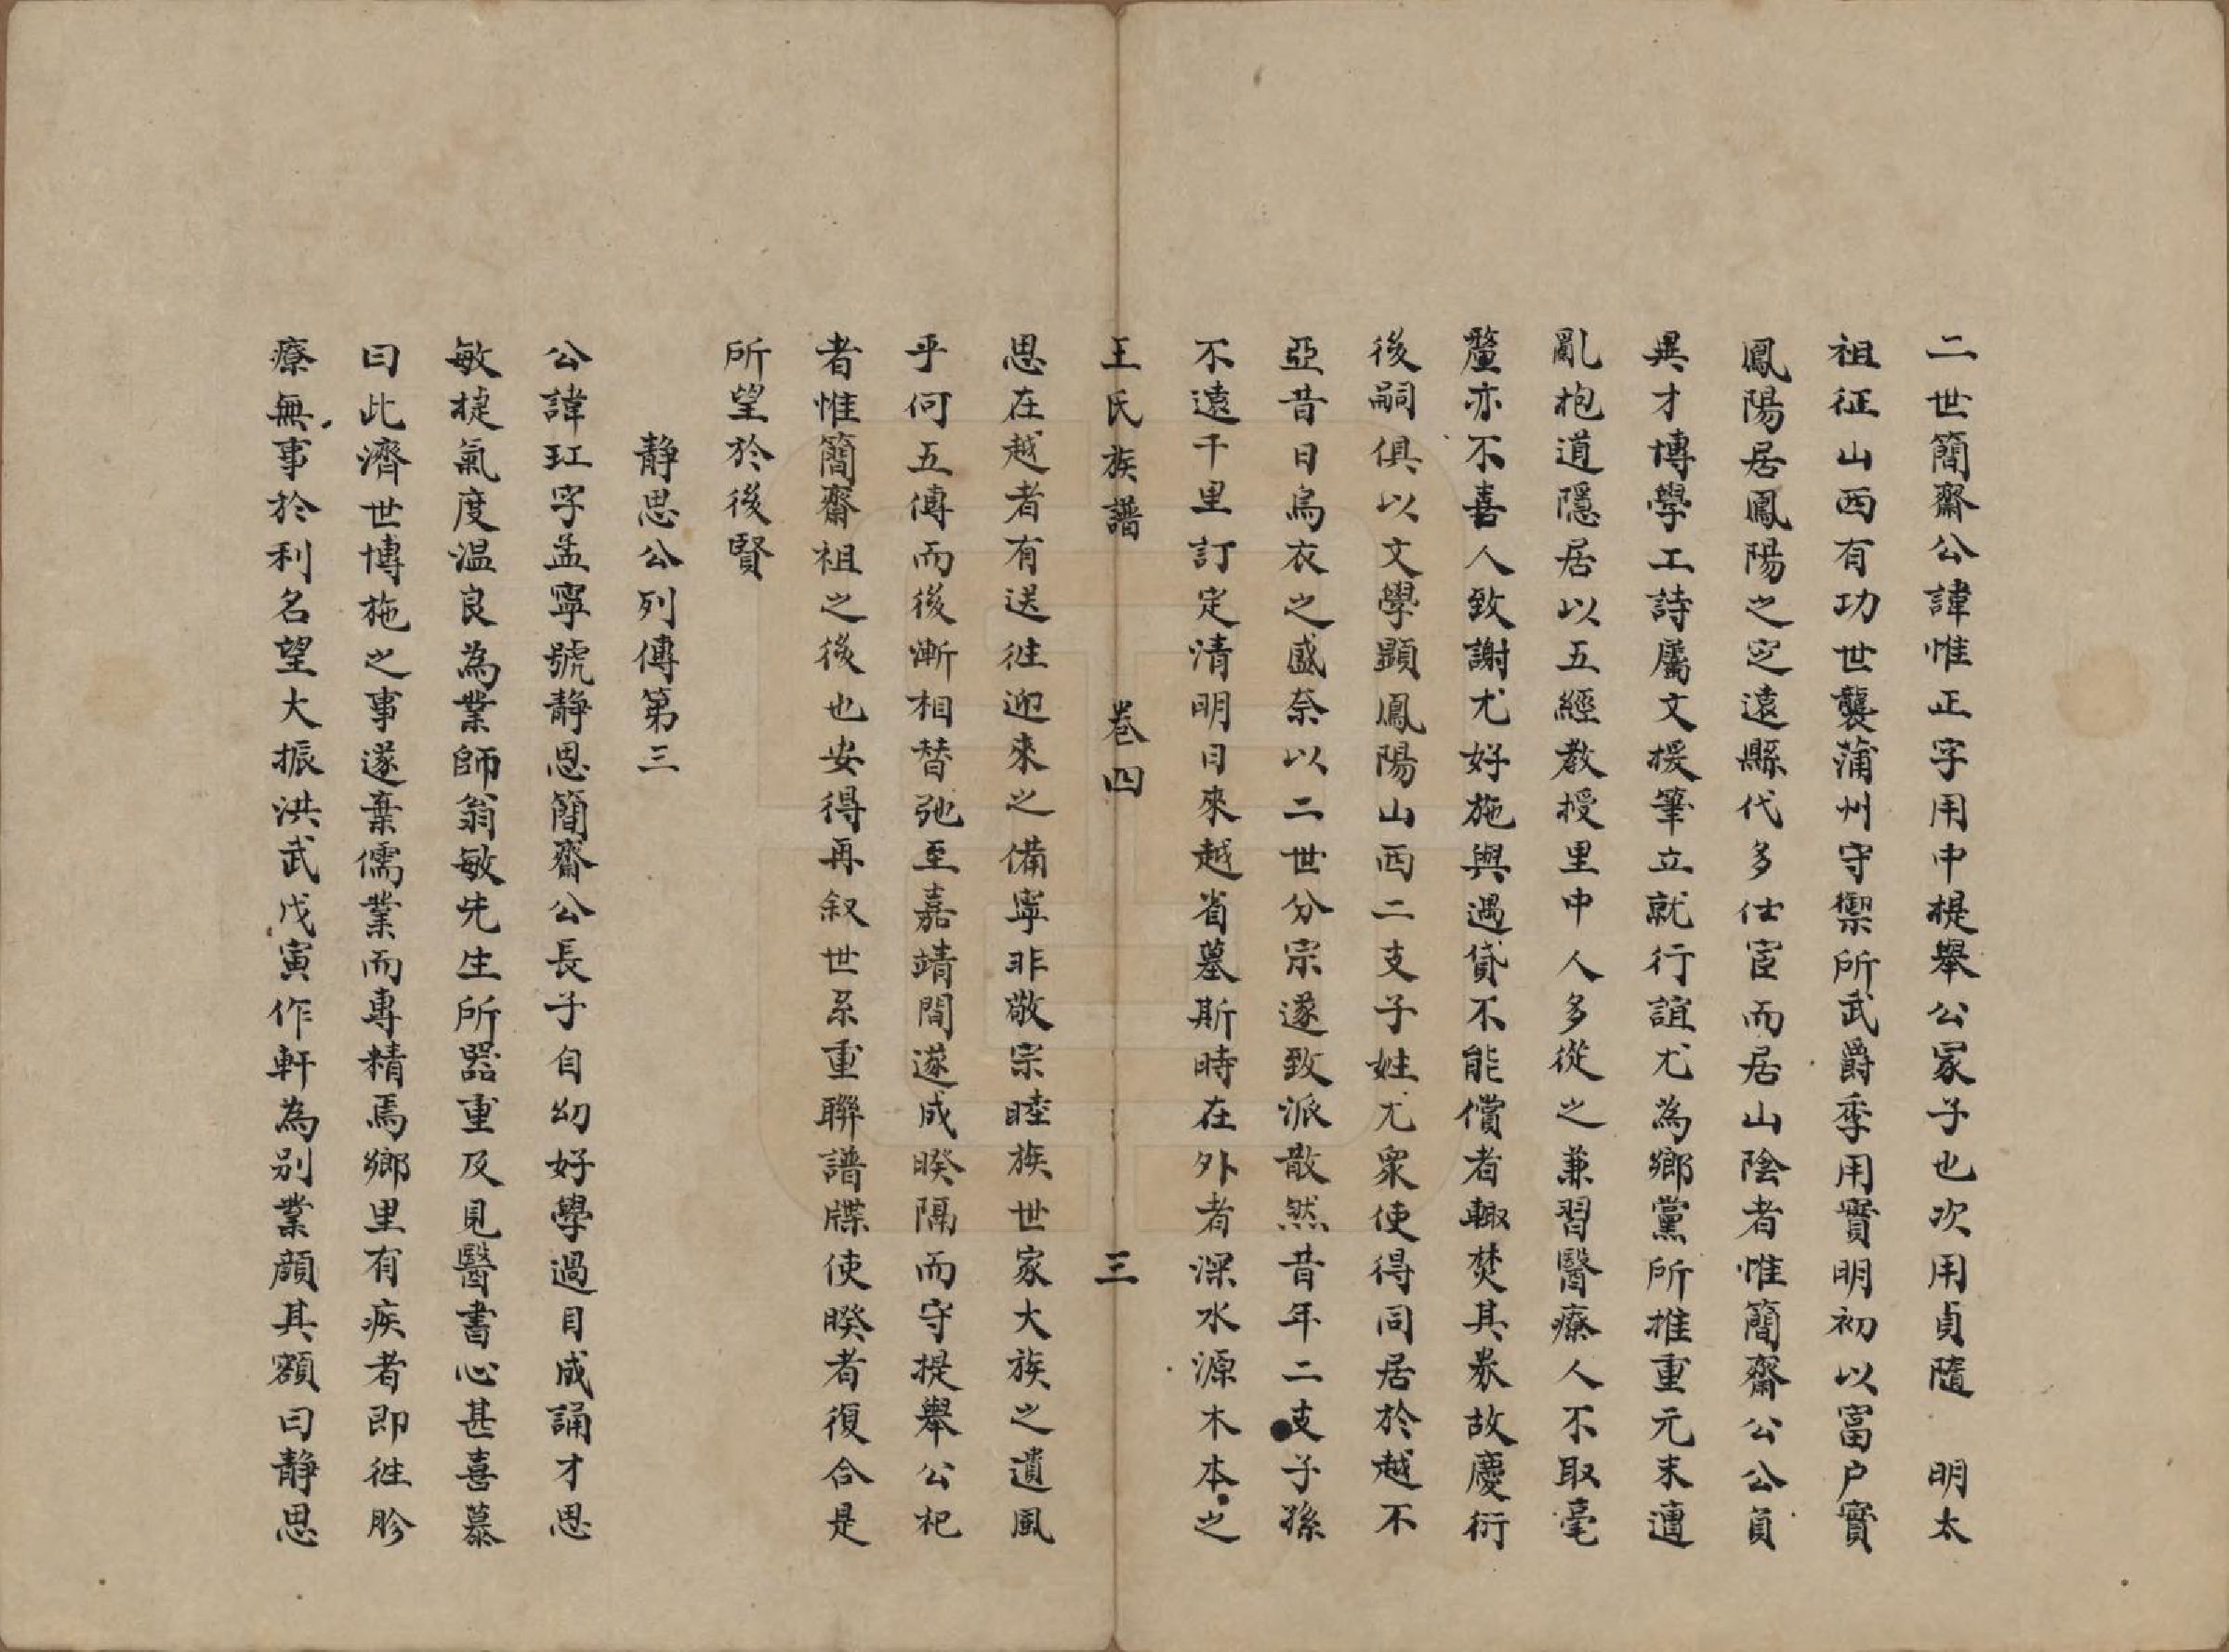 二世簡齋公諱惟正字用中提舉公冢子也次用貞隨　明太
祖征山西有功世襲蒲州守禦所武爵季用賓明初以富户實
鳳陽居鳳陽之定遠縣代多仕宦而居山陰者惟簡齋公公負
異才博學工詩屬文援筆立就行誼尤為鄉黨所推重元末遭
亂抱道隱居以五經教授里中人多從之兼習醫療人不取毫
釐亦不喜人致謝尤好施與遇貸不能償者輙焚其券故慶衍
後嗣俱以文學顯鳳陽山西二支子姓尤衆使得同居於越不
亞昔日烏衣之盛奈以二世分宗遂致派散然昔年二支子孫
不遠千里訂定清明日來越省墓斯時在外者深水源木本之
王氏族譜　卷四　三
思在越者有送徃迎來之備寧非敬宗睦族世家大族之遺風
乎何五傳而後漸相替弛至嘉靖間遂成睽隔而守提舉公祀
者惟簡齋祖之後也安得再叙世系重聯譜牒使睽者復合是
所望於後賢
静思公列傳第三
公諱玒字孟寧號靜思簡齋公長子自幼好學過目成誦才思
敏捷氣度温良為業師翁敏先生所器重及見醫書心甚喜慕
曰此濟世博施之事遂棄儒業而專精焉鄉里有疾者即徃胗
療無事於利名望大振洪武戊寅作軒為别業顔其額曰靜思